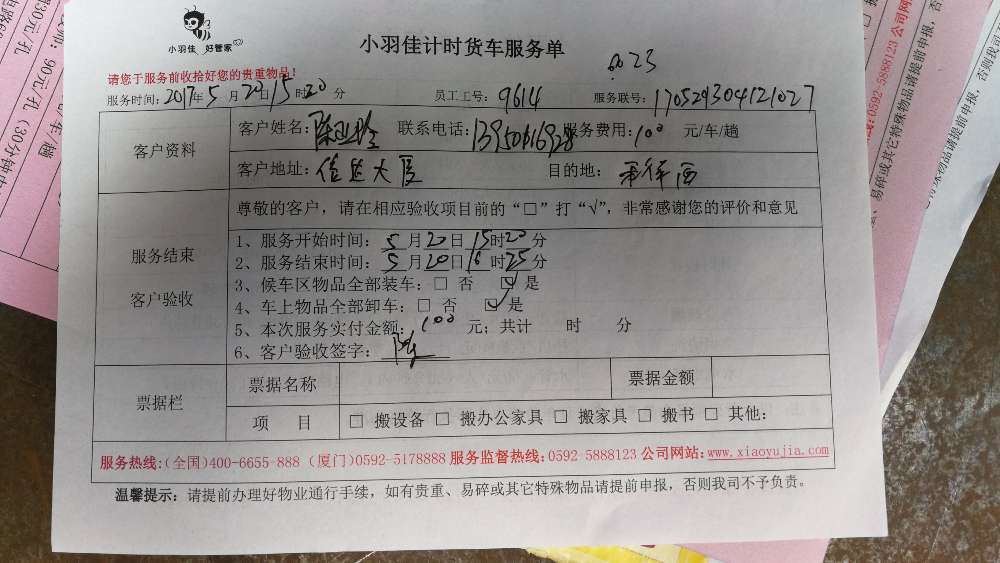 小羽佳 好管家
小羽佳计时货车服务单
023
请您于服务前收拾好您的贵重物品！
服务时间：2017年5月20日15时20分 员工工号：9614 服务联号：170529304121027
客户资料
客户姓名： 联系电话：13950016928 服务费用：100 元/车/趟
客户地址：信达大厦 目的地：
服务结束
客户验收
尊敬的客户，请在相应验收项目前的“□”打“√”，非常感谢您的评价和意见
1、服务开始时间：5月20日15时20分
2、服务结束时间：5月20日16时25分
3、候车区物品全部装车：□ 否 ☑ 是
4、车上物品全部卸车：□ 否 ☑ 是
5、本次服务实付金额：100元；共计 时 分
6、客户验收签字：陈
票据栏
票据名称 票据金额
项 目 □ 搬设备 □ 搬办公家具 □ 搬家具 □ 搬书 □ 其他：
服务热线：（全国）400-6655-888（厦门）0592-5178888 服务监督热线：0592-5888123 公司网站：www.xiaoyujia.com
温馨提示：请提前办理好物业通行手续，如有贵重、易碎或其它特殊物品请提前申报，否则我司不予负责。